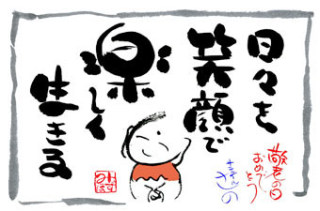 日々を
笑顔で
楽しく
生きる
敬老の日
おめでとう